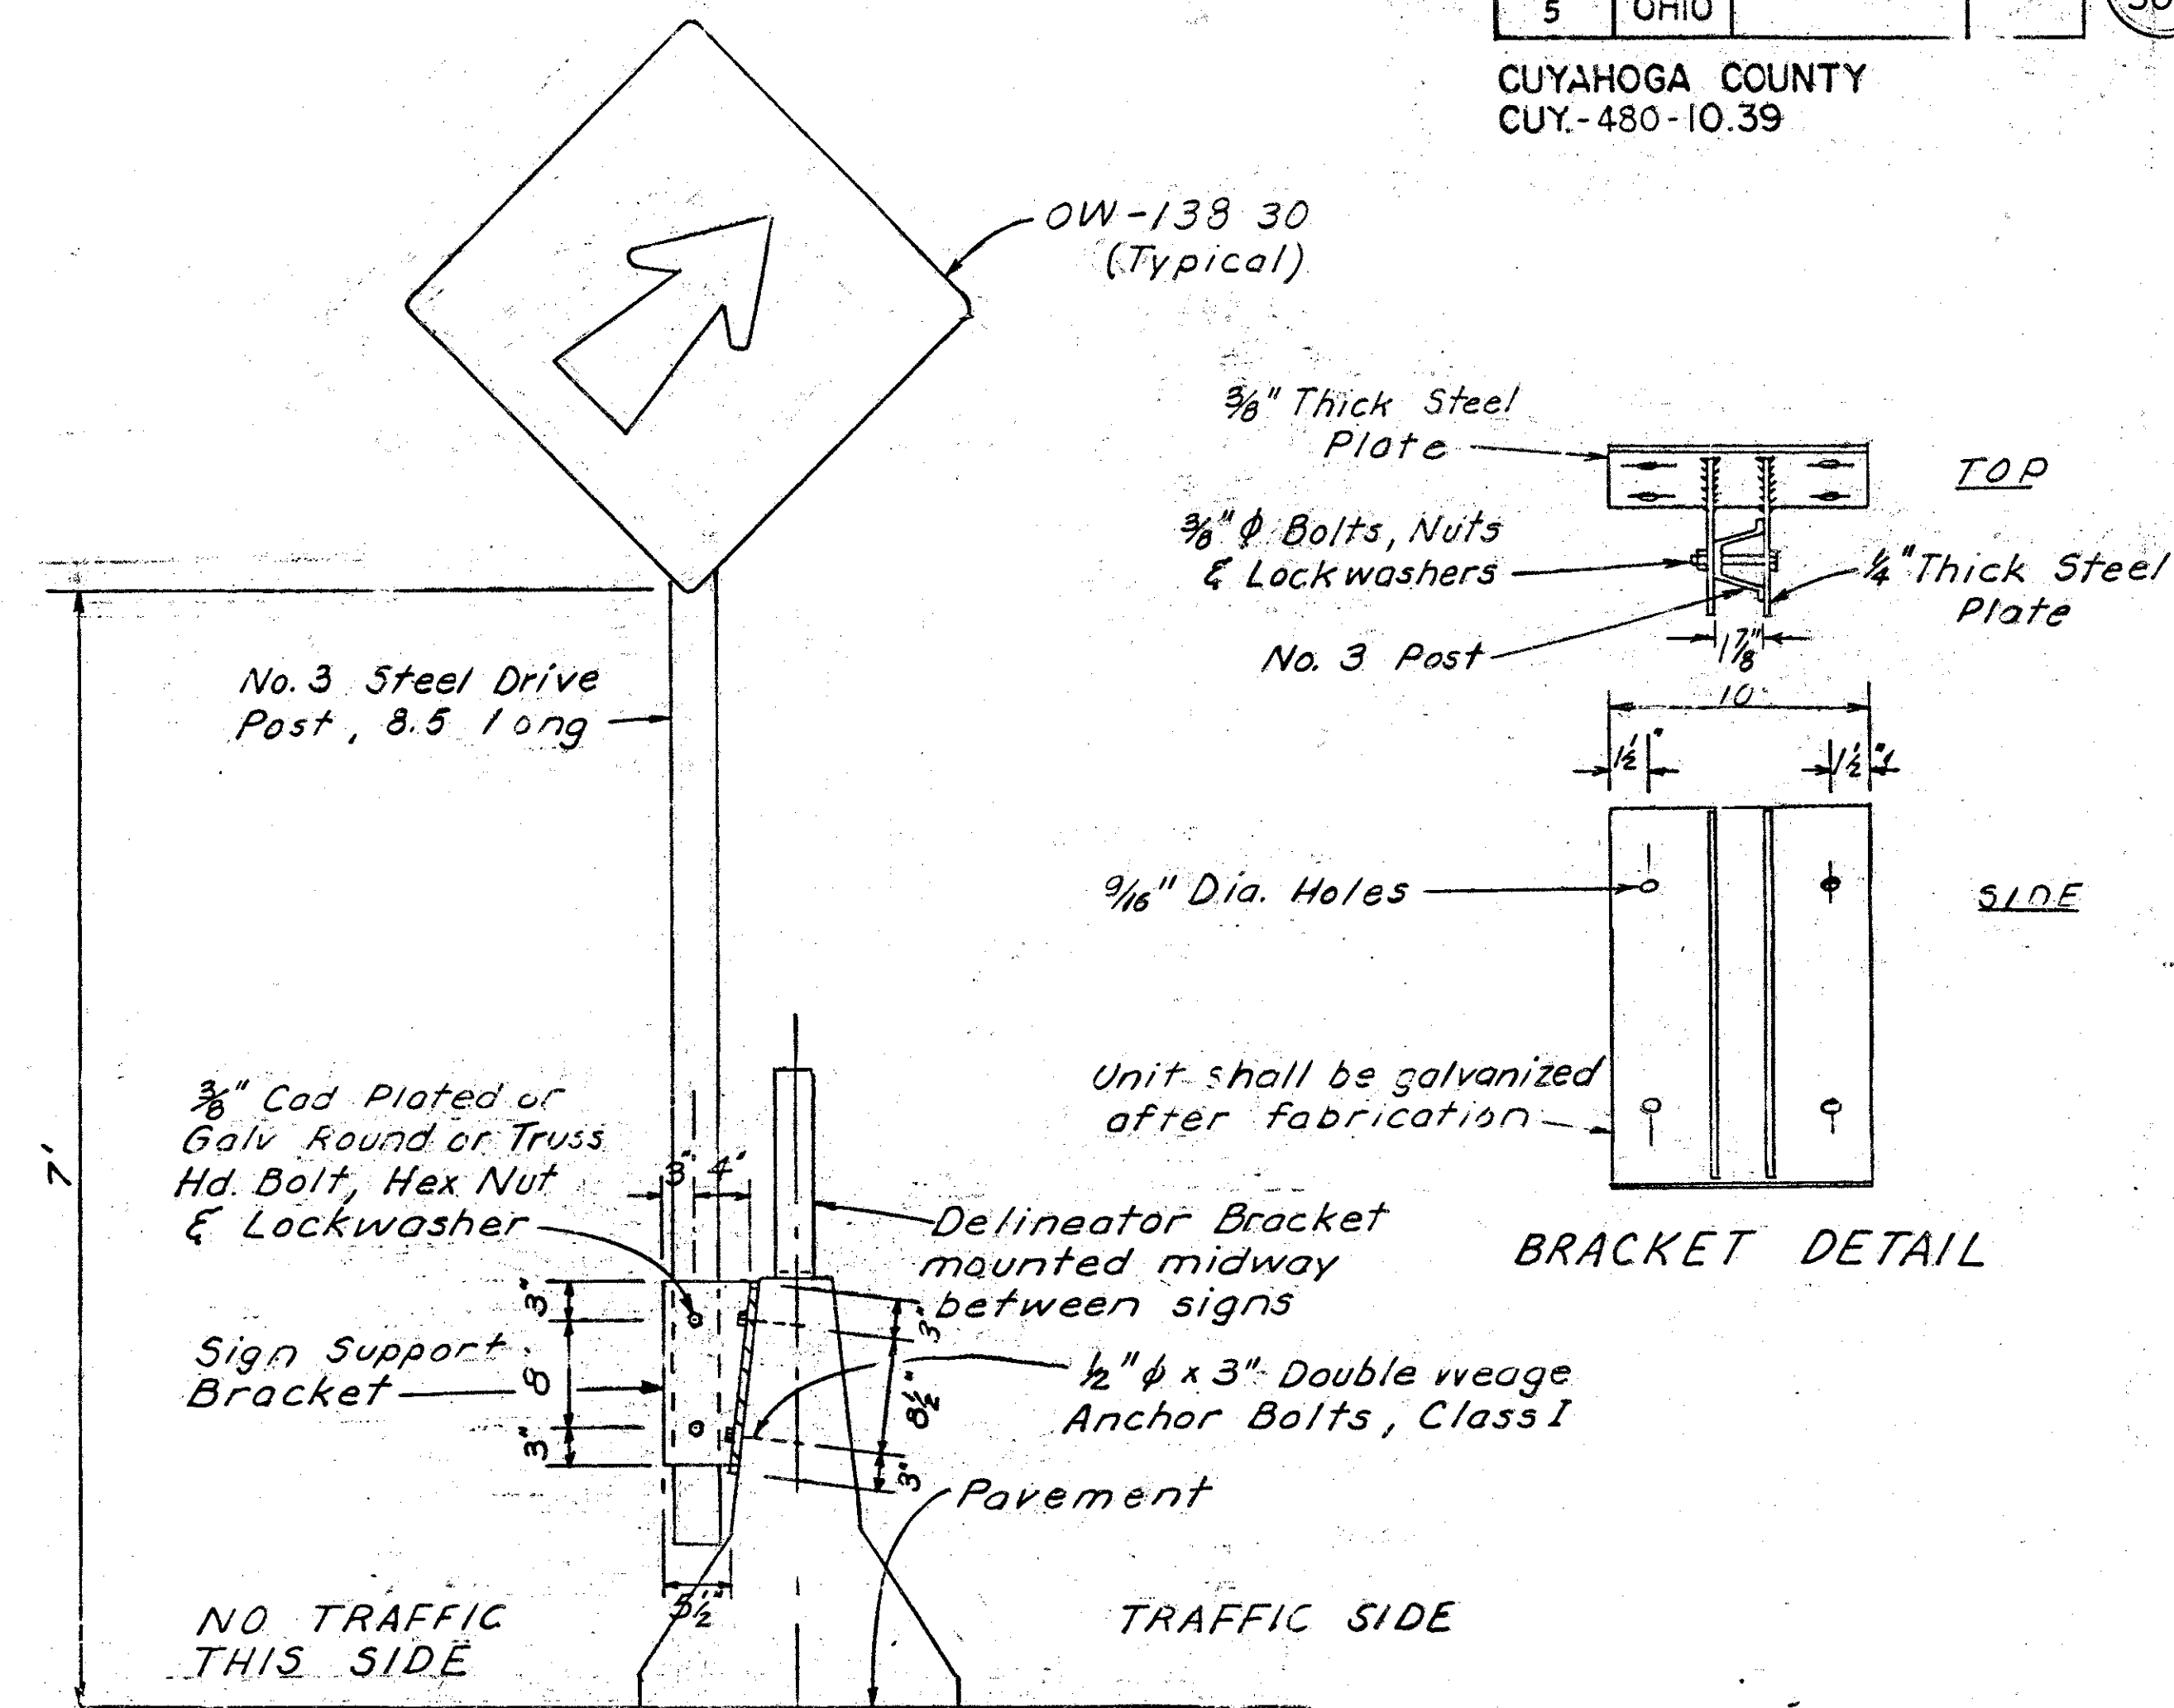 5 OHIO
CUYAHOGA COUNTY
CUY.-480-10.39
OW-138 30
(Typical)
3/8" Thick Steel
Plate
TOP
3/8" ϕ Bolts, Nuts
& Lockwashers
1/4" Thick Steel
Plate
No. 3 Post
1 7/8"
10
1 1/2"
1 1/2"
No. 3 Steel Drive
Post, 8.5 long
9/16" Dia. Holes
SIDE
Unit shall be galvanized
after fabrication
BRACKET DETAIL
7'
3/8" Cad Plated or
Galv Round or Truss
Hd. Bolt, Hex Nut
& Lockwasher
3" 4"
Delineator Bracket
mounted midway
between signs
3"
8
3"
Sign Support
Bracket
3"
8 1/2"
3"
1/2" ϕ x 3" Double weage
Anchor Bolts, Class I
Pavement
5 1/2"
NO TRAFFIC
THIS SIDE
TRAFFIC SIDE